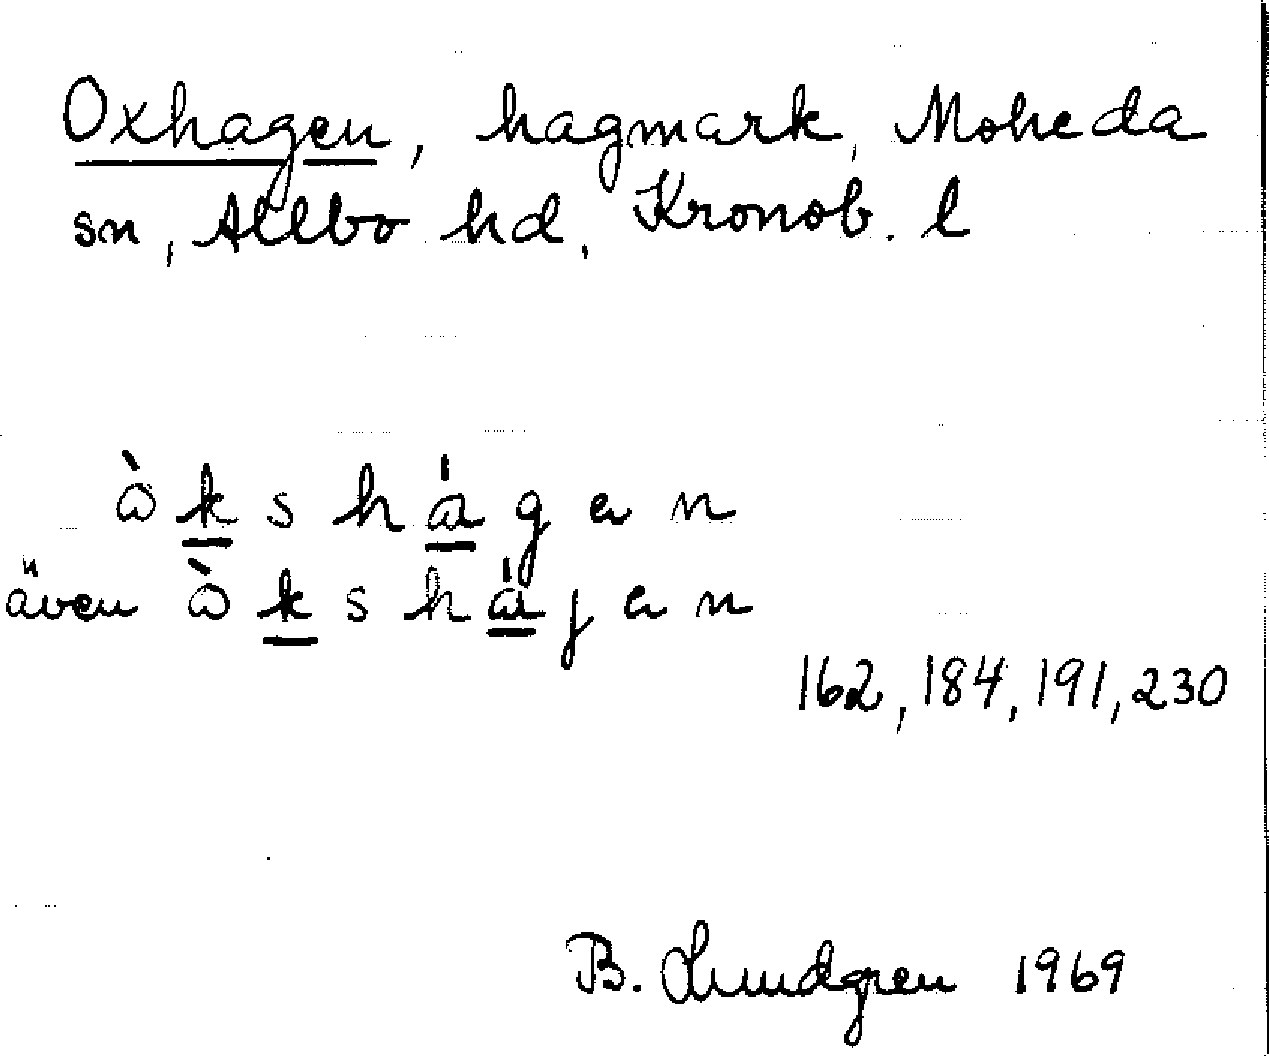 Oxhagen, hagmark, Moheda
sn, Allbo hd, Kronob. l
ò k s h á g e n
även ò k s h á j e n
162, 184, 191, 230
B. Lundgren 1969